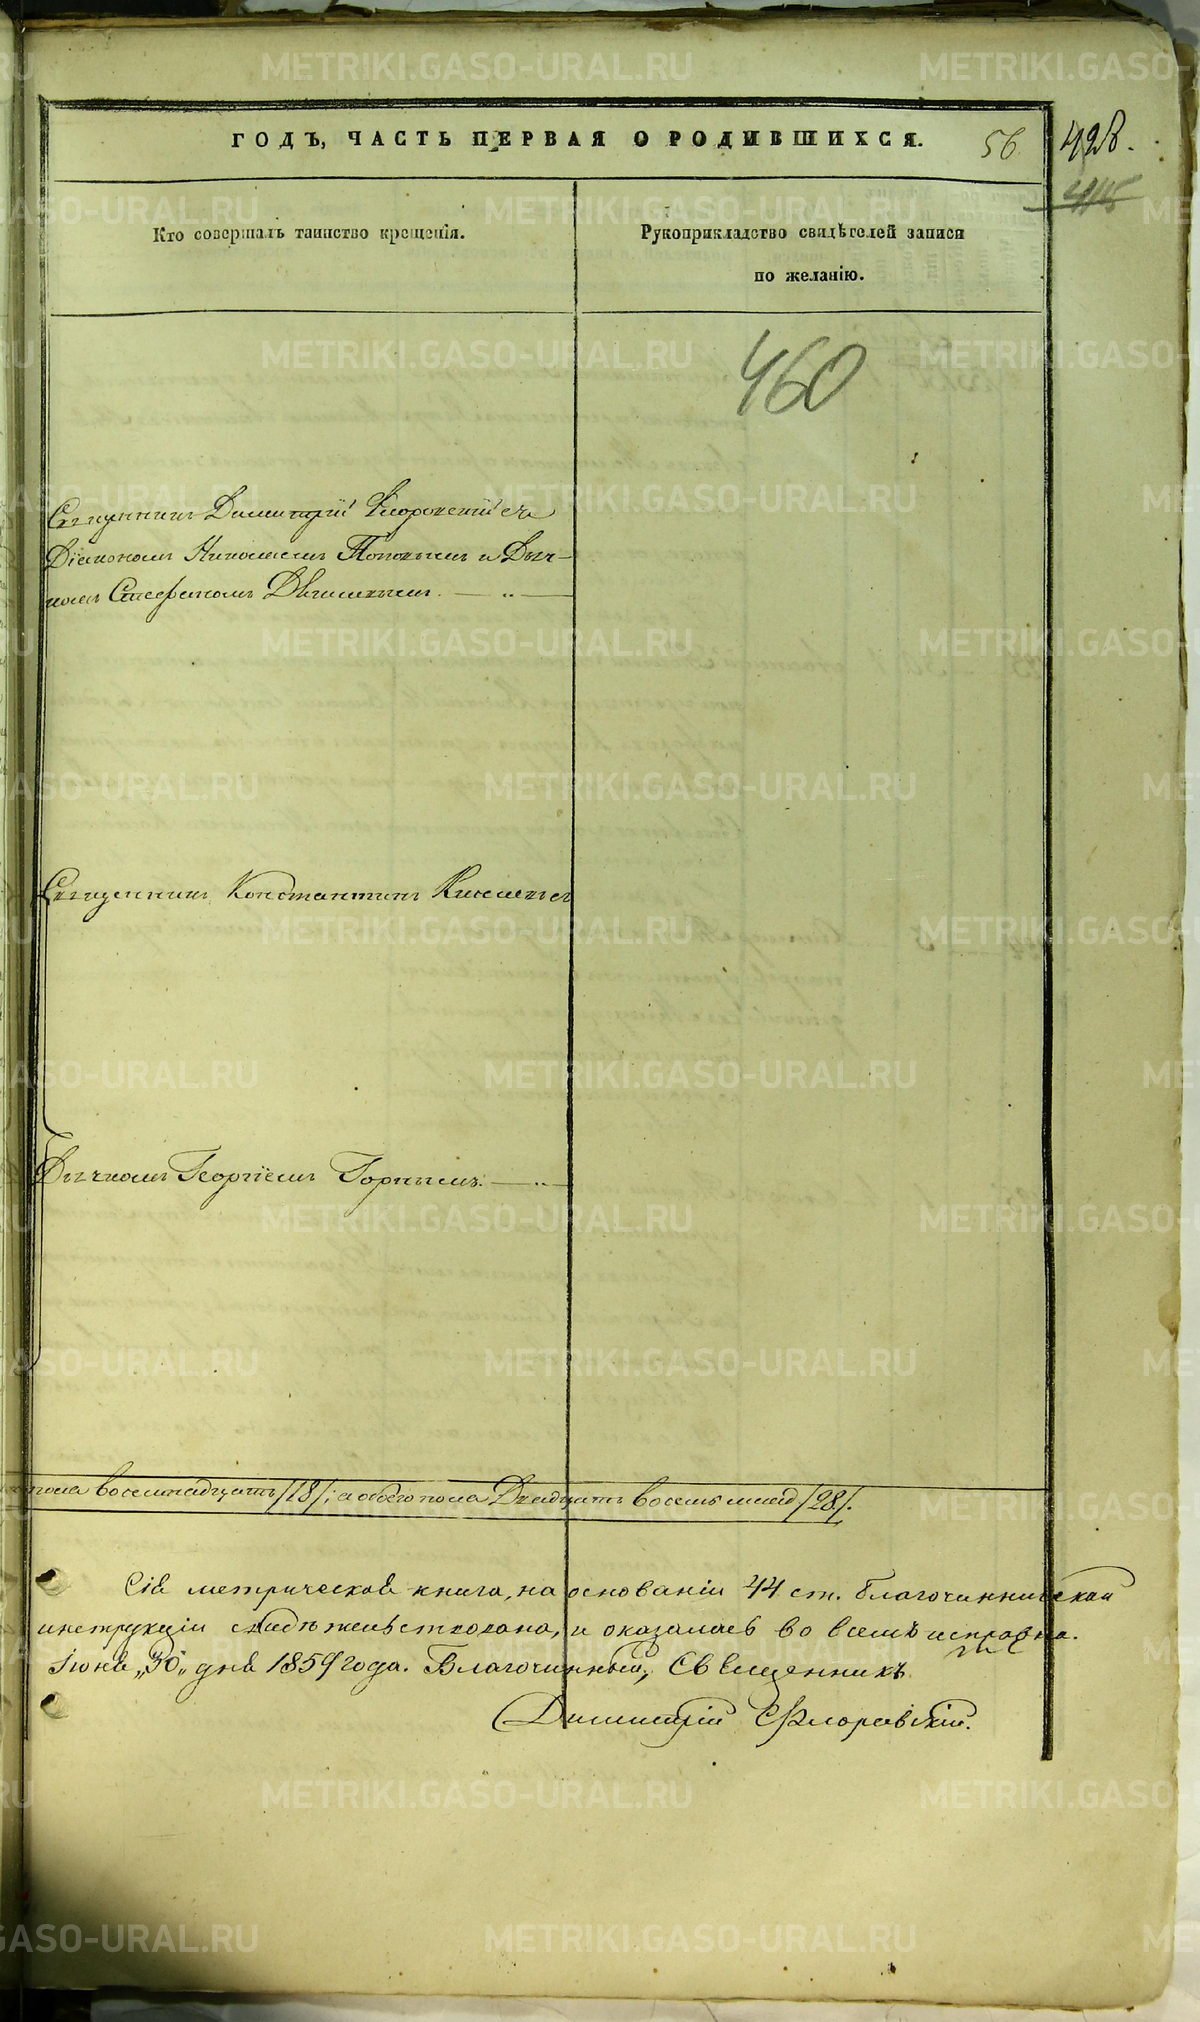 ГОДЪ, ЧАСТЬ ПЕРВАЯ О РОДИВШИХСЯ.
56
428.
Кто совершалъ таинство крещенія.
Рукоприкладство свидѣтелей записи
по желанію.
460
Священникъ Димитрій Флоровскій съ
Діакономъ Николаемъ Поповымъ и Дьяч-
комъ Стефаномъ
Священникъ Константинъ Киселевъ
Дьячкомъ Георгіемъ Горнымъ.
пола восемнадцать /18/; а обоего пола Двадцать восемь /28/.
Сія метрическая книга, на основаніи 44 ст. Благочиннической
инструкціи свидѣтельствована, и оказалась во всемъ исправна.
Іюня „30„ дня 1859 года. Благочинный, Священникъ
Димитрій Флоровскій.
METRIKI.GASO-URAL.RU